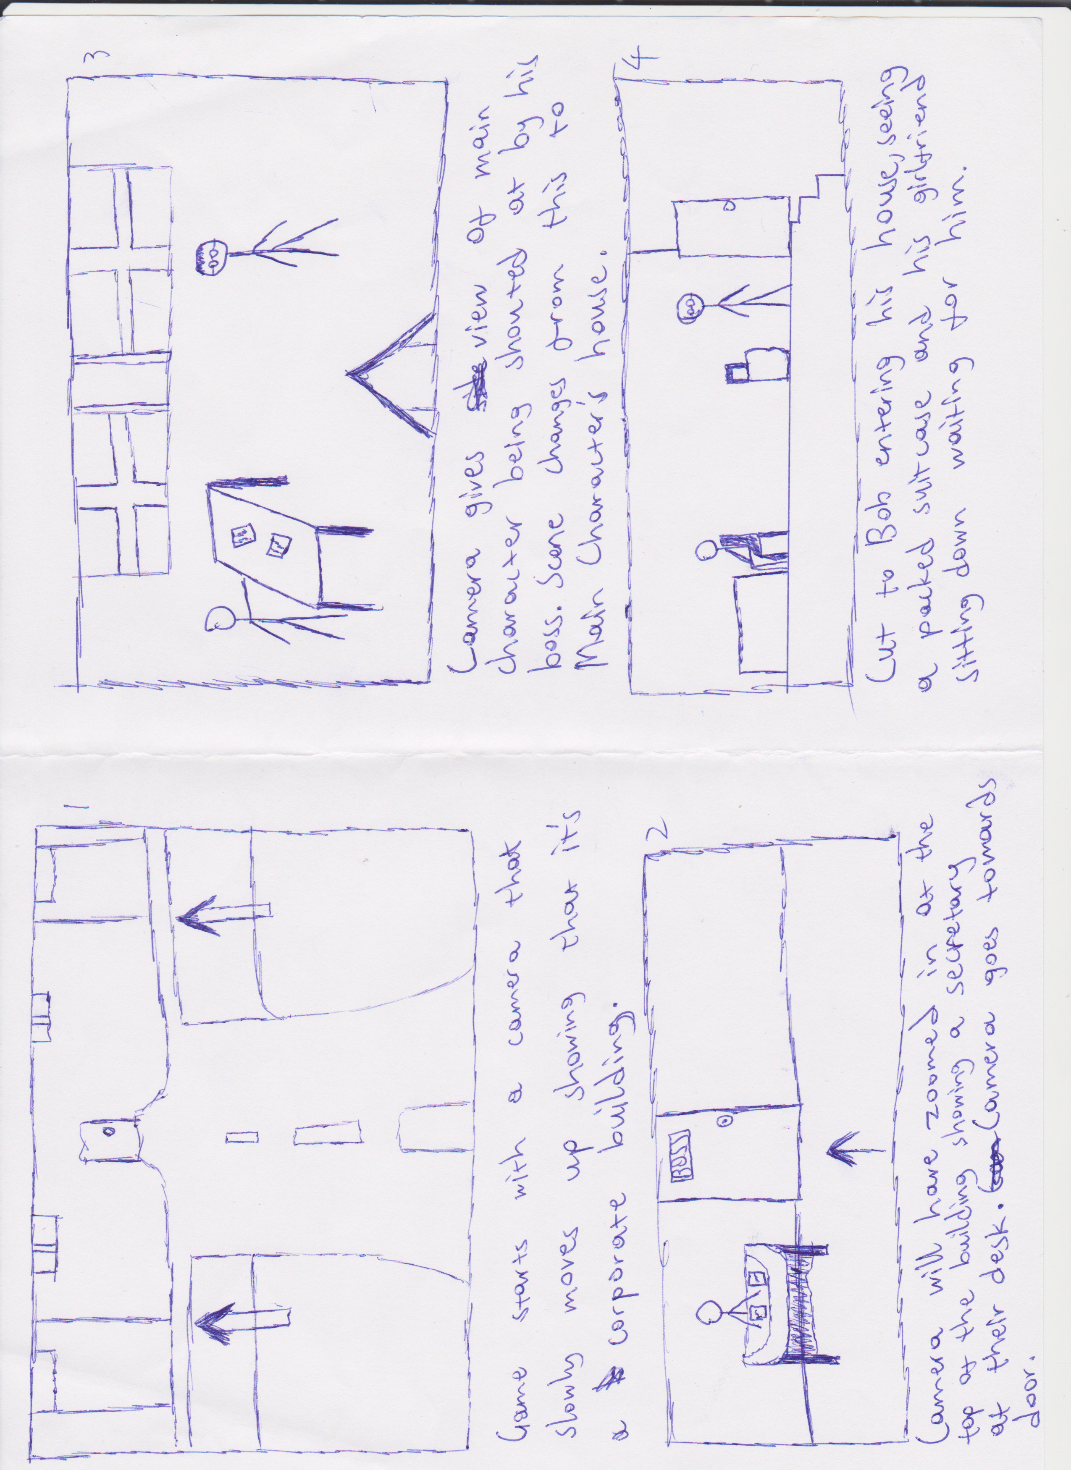 1
Game starts with a camera that
slowly moves up showing that it's
a corporate building.
2
BOSS
Camera will have zoomed in at the
top of the building showing a secretary
at their desk. Camera goes towards
door.
3
Camera gives view of main
character being shouted at by his
boss. Scene changes from this to
Main Character's house.
4
Cut to Bob entering his house, seeing
a packed suitcase and his girlfriend
sitting down waiting for him.